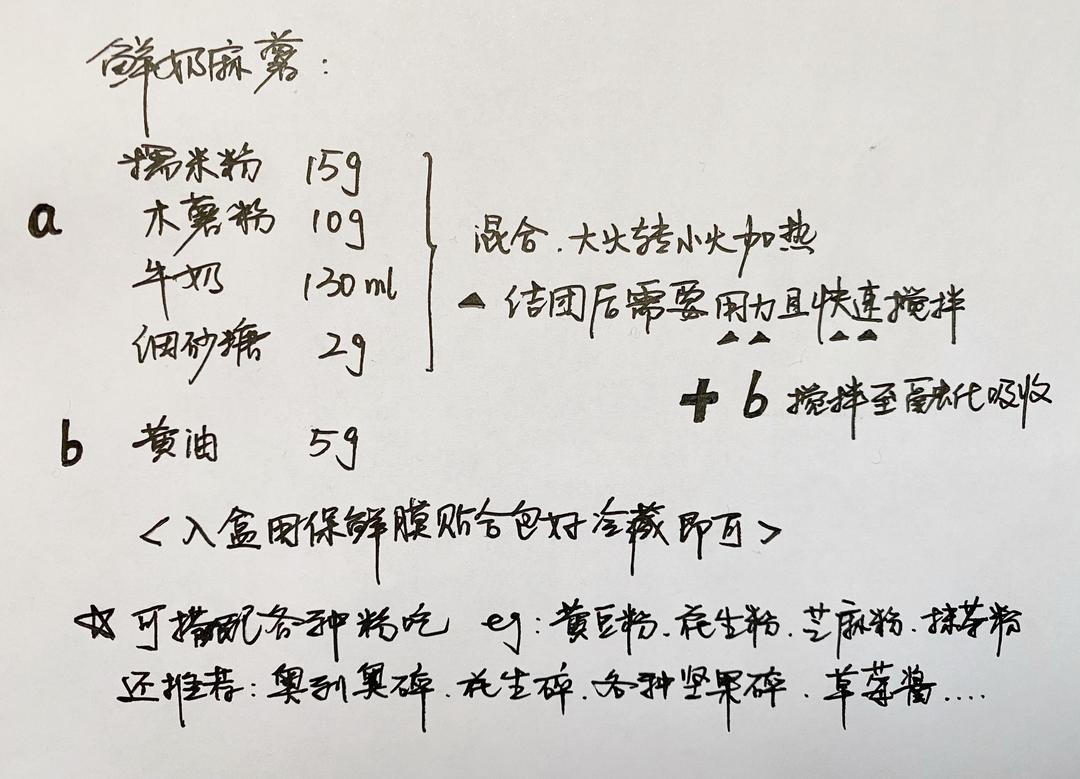 鲜奶麻薯：
糯米粉 15g
a 木薯粉 10g
混合.大火转小火加热
牛奶 130ml
▲ 结团后需要用力且快速搅拌
细砂糖 2g
+ b 搅拌至融化吸收
b 黄油 5g
<入盒用保鲜膜贴合包好冷藏即可>
☆ 可搭配各种粉吃 eg：黄豆粉.花生粉.芝麻粉.抹茶粉
还推荐：奥利奥碎.花生碎.各种坚果碎.草莓酱....